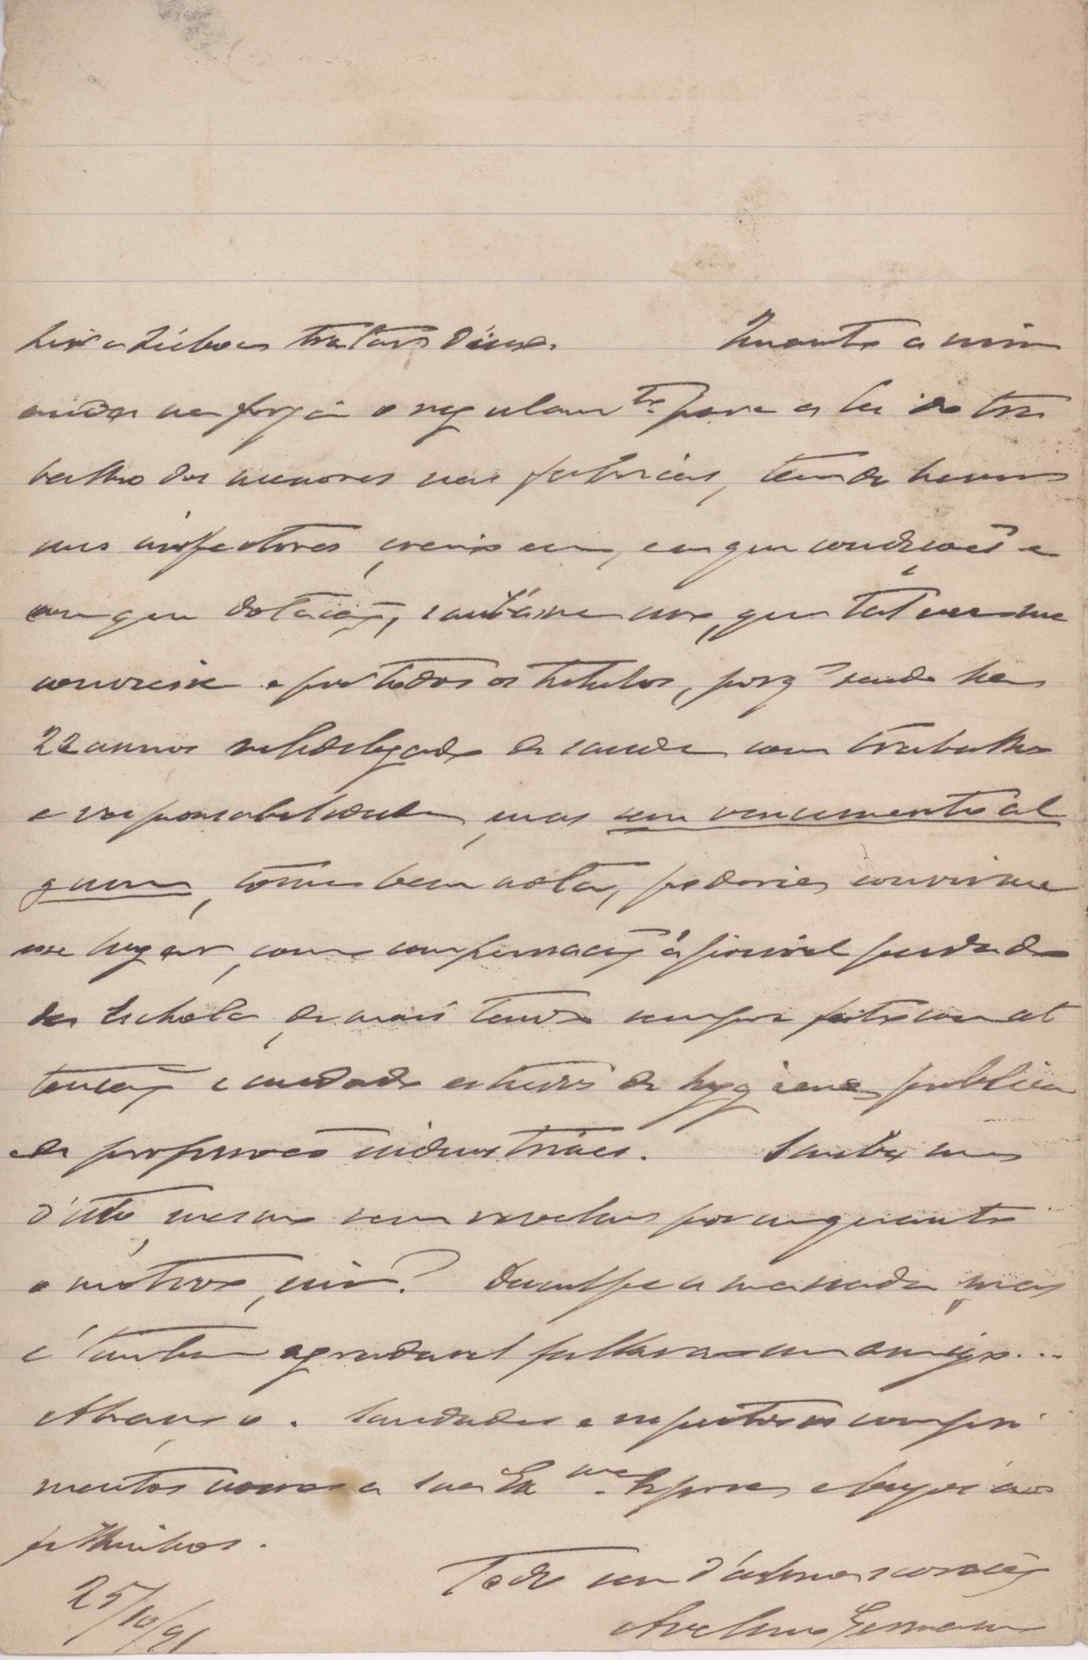 a Lisboa tratar d'isso. Quanto a mim
anda na forja o regulam.to para a lei do tra
balho dos menores nas fabricas, tendo haver
uns inspectores, creio eu, em que condições e
em que dotação, e saiba-me isso, que talvez me
conviesse e por todos os titulos, porq sendo ha
22 annos subdelegado de saude com trabalho
e responsabilidade, mas sem vencimento al
gum, tome bem nota, poderia convir-me
esse lugar, como compensação á possivel perda do
da Eschola, de mais tendo sempre feito com at
tenção e cuidado estudos de hygiene publica
e de profissões industriaes. Saiba-me
d'isto, mesmo sem revelar por emquanto
o motivo, sim? Desculpe a massada, mas
é tambem agradavel fallar a um amigo...
Abraço-o. Saudades e respeitosos compri
mentos nossos a sua Ex.ma Esposa e beijos aos
filhinhos.
Todo seu d'alma e coração
Avelino Germano
25/10/91